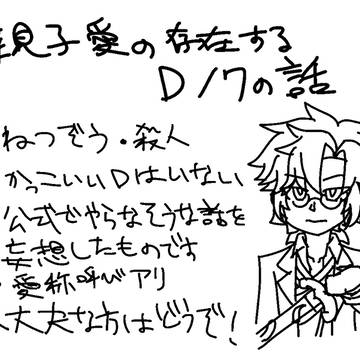 親子愛の存在する
D/7の話
ねつぞう・殺人
かっこいいDはいない
公式でやらなそうな話を
妄想したものです
・愛称呼びアリ
大丈夫な方はどうぞ!